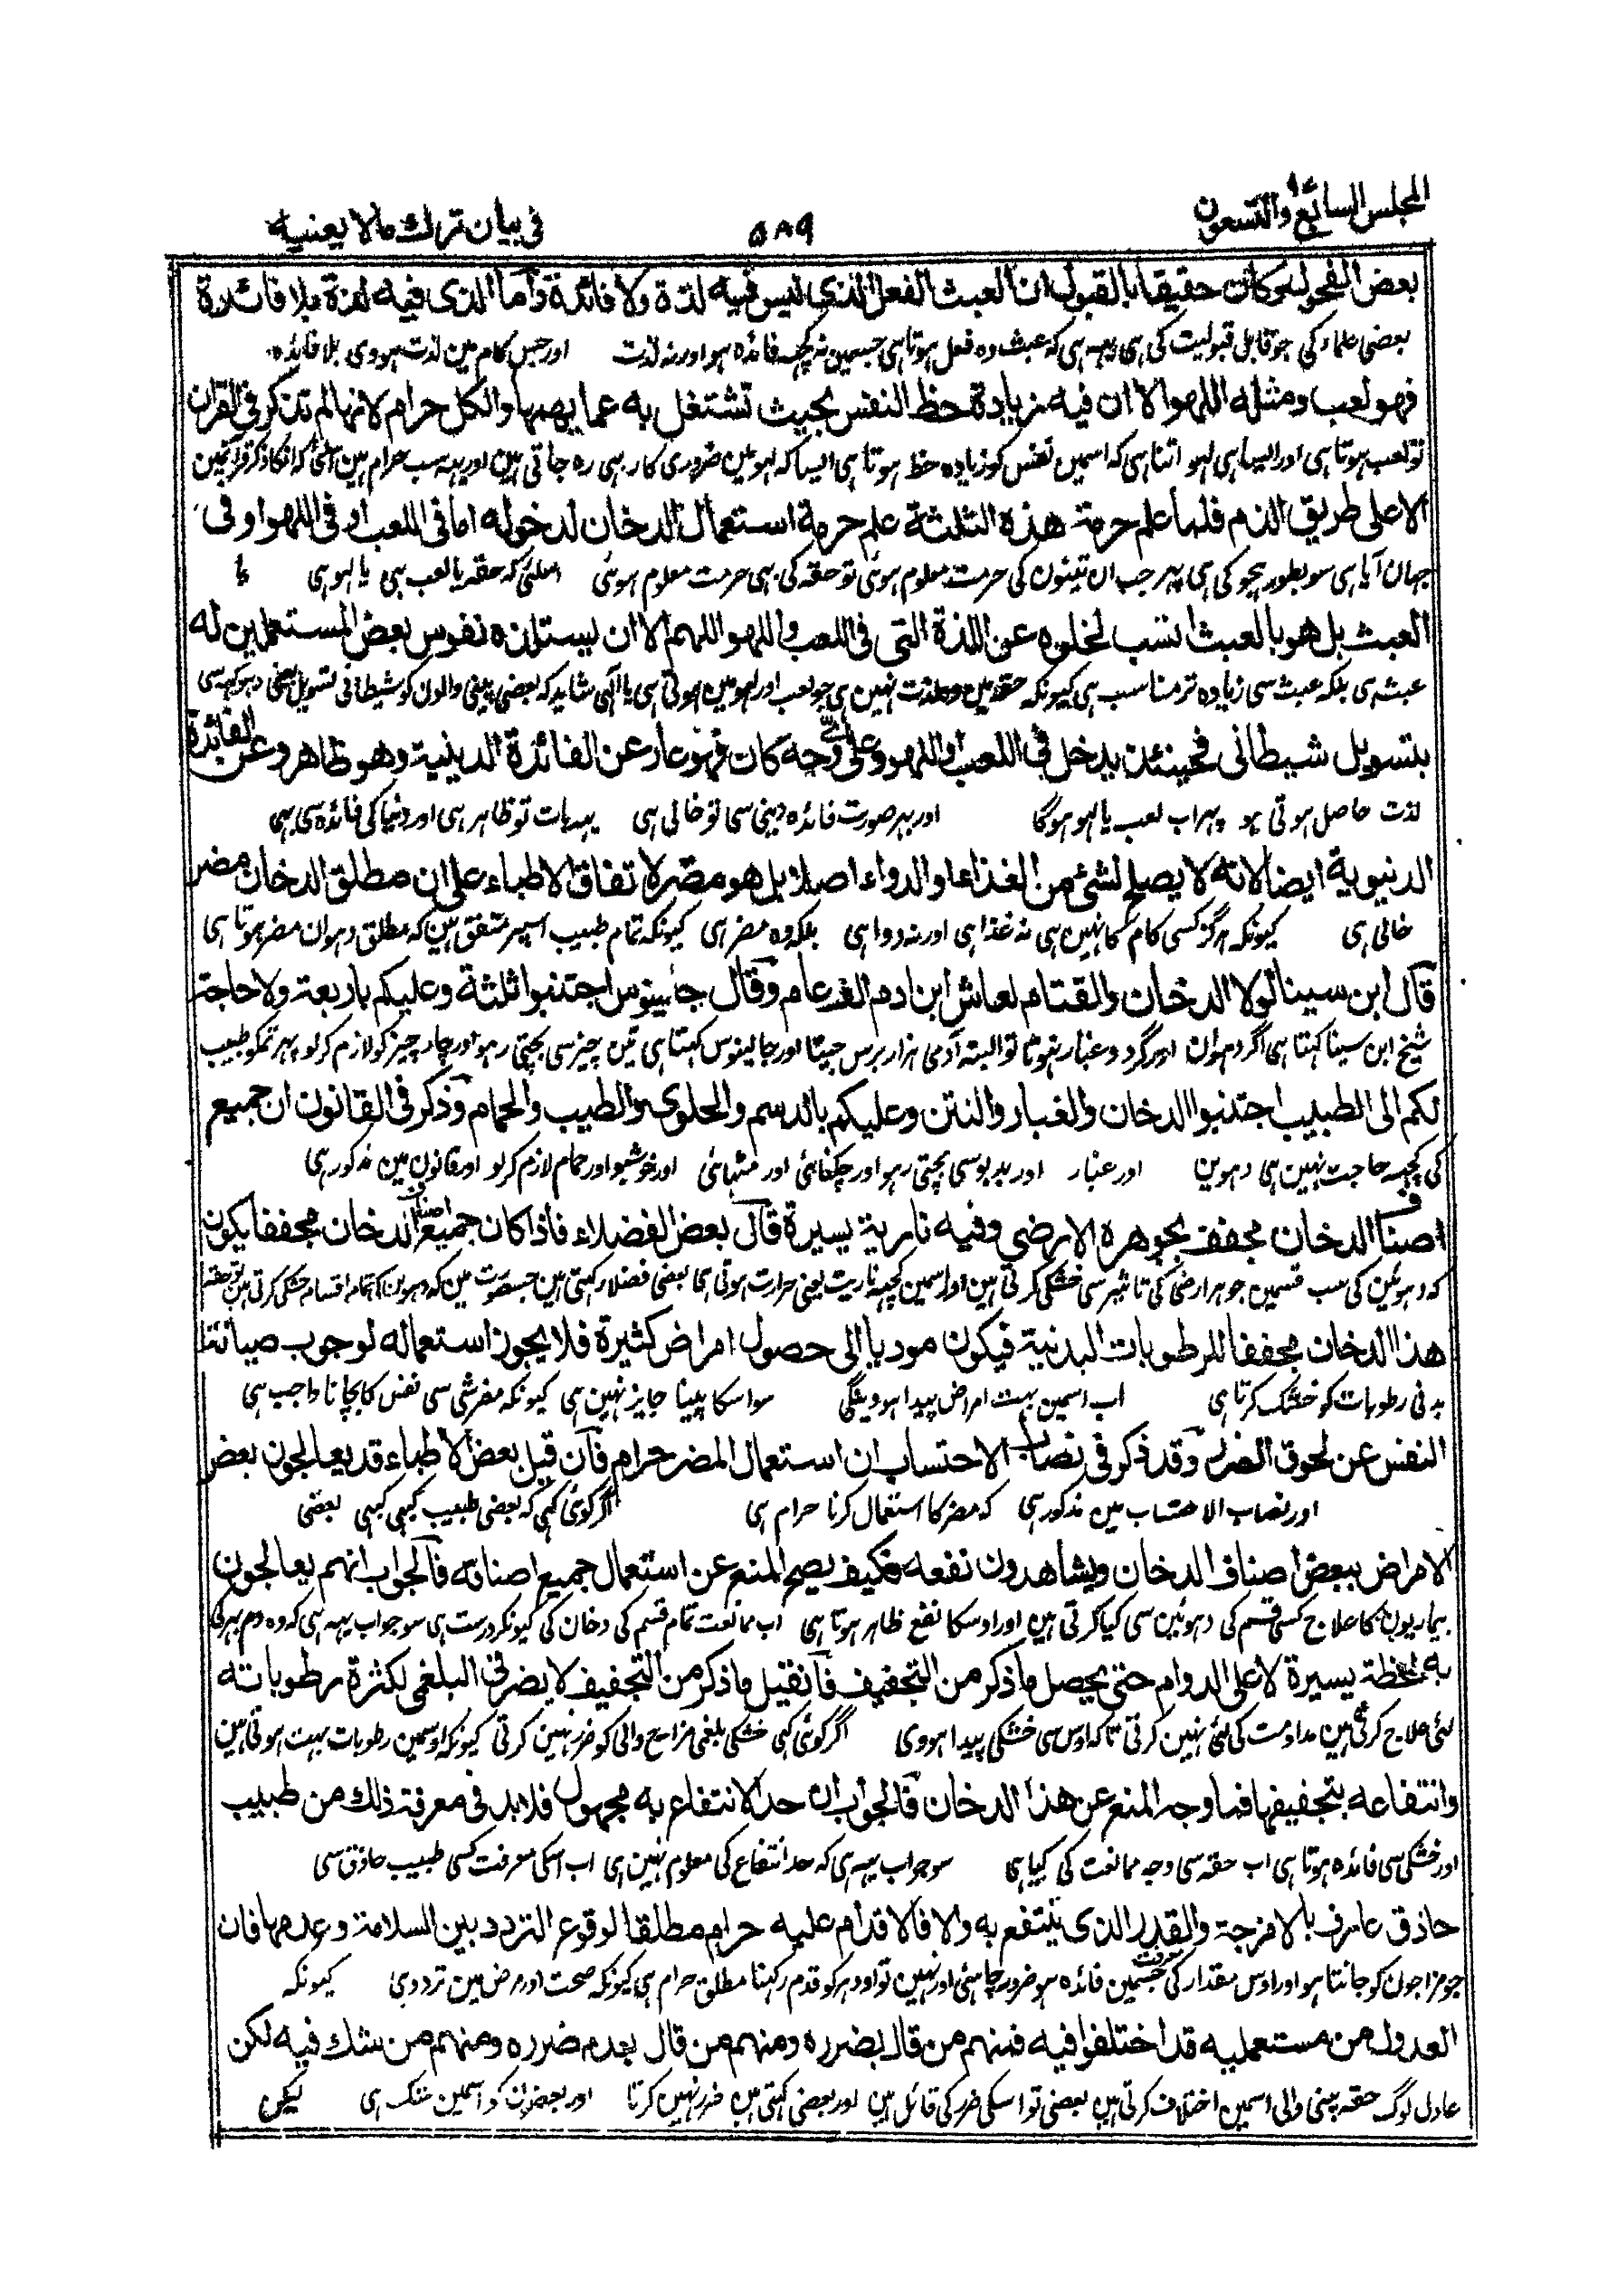 المجلس السابع والتسعون
۵۸۹
فی بیان ترک مالا یعنیه
بعض الفحول وکان حقیقا بالقبول ان العبث الفعل الذی لیس فیه لذة ولا فائدة وأما الذی فیه لذة بلا فائدة
بعضی علماء کی جو قابل قبولیت کی ہی یہہ ہی کہ عبث وہ فعل ہوتا ہی جسمین نہ کچہہ فائدہ ہو اور نہ لذت اور جس کام مین لذت ہووی بلا فائدہ
فهو لعب ومثله اللهو الا ان فیه زیادة حظ النفس بحیث تشتغل به عما یهمها والکل حرام لانها لم تذکر فی القران
تو لعب ہوتا ہی اور ایسا ہی لہو اتنا ہی کہ اسمین نفس کو زیادہ حظ ہوتا ہی ایسا کہ لہو مین ضروری کار بہی رہ جاتی ہین اور یہہ سب حرام ہین اسلئی کہ انکا ذکر قرآن مین
الا علی طریق الذم فلما علم حرمة هذه الثلثة علم حرمة استعمال الدخان لدخوله اما فی اللعب او فی اللهو او فی
جہان آیا ہی سو بطور ہجو کی ہی پہر جب ان تینون کی حرمت معلوم ہوئی تو حقہ کی بہی حرمت معلوم ہوئی اسلئی کہ حقہ یا لعب ہی یا لہو ہی یا
العبث بل هو بالعبث انسب لخلوه عن اللذة التی فی اللعب واللهو اللهم الا ان یستلذه نفوس بعض المستعملین له
عبث ہی بلکہ عبث سی زیادہ تر مناسب ہی کیونکہ حقہ مین وہ لذت نہین ہی جو لعب اور لہو مین ہوتی ہی یا الٰہی شاید کہ بعضی پینی والون کو شیطانی تسویل یعنی دہوکہی سی
بتسویل شیطانی فحینئذ یدخل فی اللعب او اللهو وعلی ای وجه کان فهو عار عن الفائدة الدینیة وهو ظاهر وعن الفائدة
لذت حاصل ہوتی ہو پہر اب لعب یا لہو ہوگا اور بہر صورت فائدہ دینی سی تو خالی ہی یہہ بات تو ظاہر ہی اور دنیا کی فائدہ سی بہی
الدنیویة ایضا لانه لا یصلح لشئ من الغذاء والدواء اصلا بل هو مضر لاتفاق الاطباء علی ان مطلق الدخان مضر
خالی ہی کیونکہ ہرگز کسی کام کا نہین ہی نہ غذا ہی اور نہ دوا ہی بلکہ وہ مضر ہی کیونکہ تمام طبیب اسپر متفق ہین کہ مطلق دہوان مضر ہوتا ہی
قال ابن سینا لولا الدخان والقتام لعاش ابن ادم الف عام وقال جالینوس اجتنبوا ثلثة وعلیکم باربعة ولا حاجة
شیخ ابن سینا کہتا ہی اگر دہوان اور گرد و غبار نہوتا تو البتہ آدمی ہزار برس جیتا اور جالینوس کہتا ہی تین چیز سی بچتی رہو اور چار چیز کو لازم کرلو پہر تمکو طبیب
لکم الی الطبیب اجتنبوا الدخان والغبار والنتن وعلیکم بالدسم والحلوی والطیب والحمام وذکر فی القانون ان جمیع
کی کچہہ حاجت نہین ہی دہوین اور غبار اور بدبو سی بچتی رہو اور چکنائی اور مٹہائی اور خوشبو اور حمام لازم کرلو اور قانون مین مذکور ہی
اصناف الدخان مجفف بجوهره الارضی وفیه ناریة یسیرة قال بعض الفضلاء فاذا کان جمیع اصناف الدخان مجففا یکون
کہ دہوئین کی سب قسمین جوہر ارضی کی تاثیر سی خشکی کرتی ہین اور اسمین کچہہ ناریت یعنی حرارت ہوتی ہی بعضی فضلا کہتی ہین جسصورت مین کہ دہوین کی تمام اقسام خشکی کرتی ہین تو حقہ
هذا الدخان مجففا للرطوبات البدنیة فیکون مودیا الی حصول امراض کثیرة فلا یجوز استعماله لوجوب صیانة
بدنی رطوبات کو خشک کرتا ہی اب اسمین بہت امراض پیدا ہووینگی سو اسکا پینا جایز نہین ہی کیونکہ مضر شی سی نفس کا بچانا واجب ہی
النفس عن لحوق الضرر وقد ذکر فی نصاب الاحتساب ان استعمال المضر حرام فان قیل بعض الاطباء قد یعالجون بعض
اور نصاب الاحتساب مین مذکور ہی کہ مضر کا استعمال کرنا حرام ہی اگر کوئی کہی کہ بعضی طبیب کبہی کبہی بعضی
الامراض ببعض اصناف الدخان ویشاهدون نفعه فکیف یصح المنع عن استعمال جمیع اصنافه فالجواب انهم یعالجون
بیماریون کا علاج کسی قسم کی دہوئین سی کیا کرتی ہین اور اوسکا نفع ظاہر ہوتا ہی اب ممانعت تمام قسم کی دخان کی کیونکر درست ہی سو جواب یہہ ہی کہ وہ دم بہر کی
به لحظة یسیرة لا علی الدوام حتی یحصل ما ذکر من التجفیف فان قیل ما ذکر من التجفیف لا یضر فی البلغمی لکثرة رطوباته
لئی علاج کرتی ہین مداومت کی لئی نہین کرتی تاکہ اوس سی خشکی پیدا ہووی اگر کوئی کہی خشکی بلغمی مزاج والی کو ضرر نہین کرتی کیونکہ اوسمین رطوبات بہت ہوتی ہین
وانتفاعه بتجفیفها فما وجه المنع عن هذا الدخان فالجواب ان حد الانتفاع به مجهول فلا بد فی معرفة ذلک من طبیب
اور خشکی سی فائدہ ہوتا ہی اب حقہ سی وجہ ممانعت کی کیا ہی سو جواب یہہ ہی کہ حد انتفاع کی معلوم نہین ہی اب اسکی معرفت کسی طبیب حاذق سی
حاذق عارف بالامزجة والقدر الذی ینتفع به والا فالاقدام علیه حرام مطلقا لوقوع التردد بین السلامة وعدمها فان
جو مزاجون کو جانتا ہو اور اوس مقدار کی معرفت جسمین فائدہ ہو ضرور چاہئی اور نہین تو اودہر کو قدم رکہنا مطلق حرام ہی کیونکہ صحت اور مرض مین تردد ہی کیونکہ
العدول من مستعملیه قد اختلفوا فیه فمنهم من قال بضرره ومنهم من قال بعدم ضرره ومنهم من شک فیه لکن
عادل لوگ حقہ پینی والی اسمین اختلاف کرتی ہین بعضی تو اسکی ضرر کی قائل ہین اور بعضی کہتی ہین ضرر نہین کرتا اور بعضون کو اسمین شک ہی لیکن